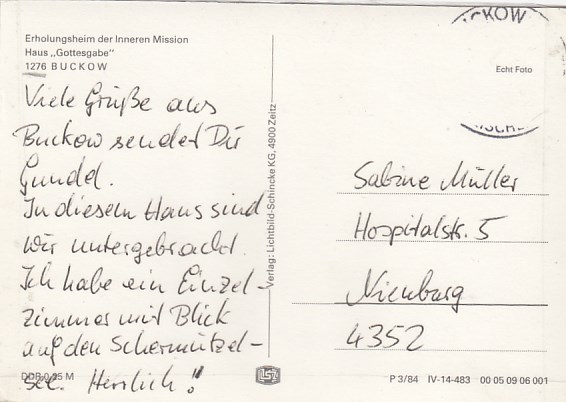 Erholungsheim der Inneren Mission
Haus „Gottesgabe"
1276 BUCKOW
Viele Grüße aus
Buckow sendet Dir
Gundel.
In diesem Haus sind
wir untergebracht.
Ich habe ein Einzel-
zimmer mit Blick
auf den Schermützel-
see. Herrlich!
DDR 0,25 M
Verlag: Lichtbild-Schincke KG, 4900 Zeitz
CKOW
Echt Foto
Sabine Müller
Hospitalstr. 5
Nienburg
4352
P 3/84 IV-14-483 00 05 09 06 001